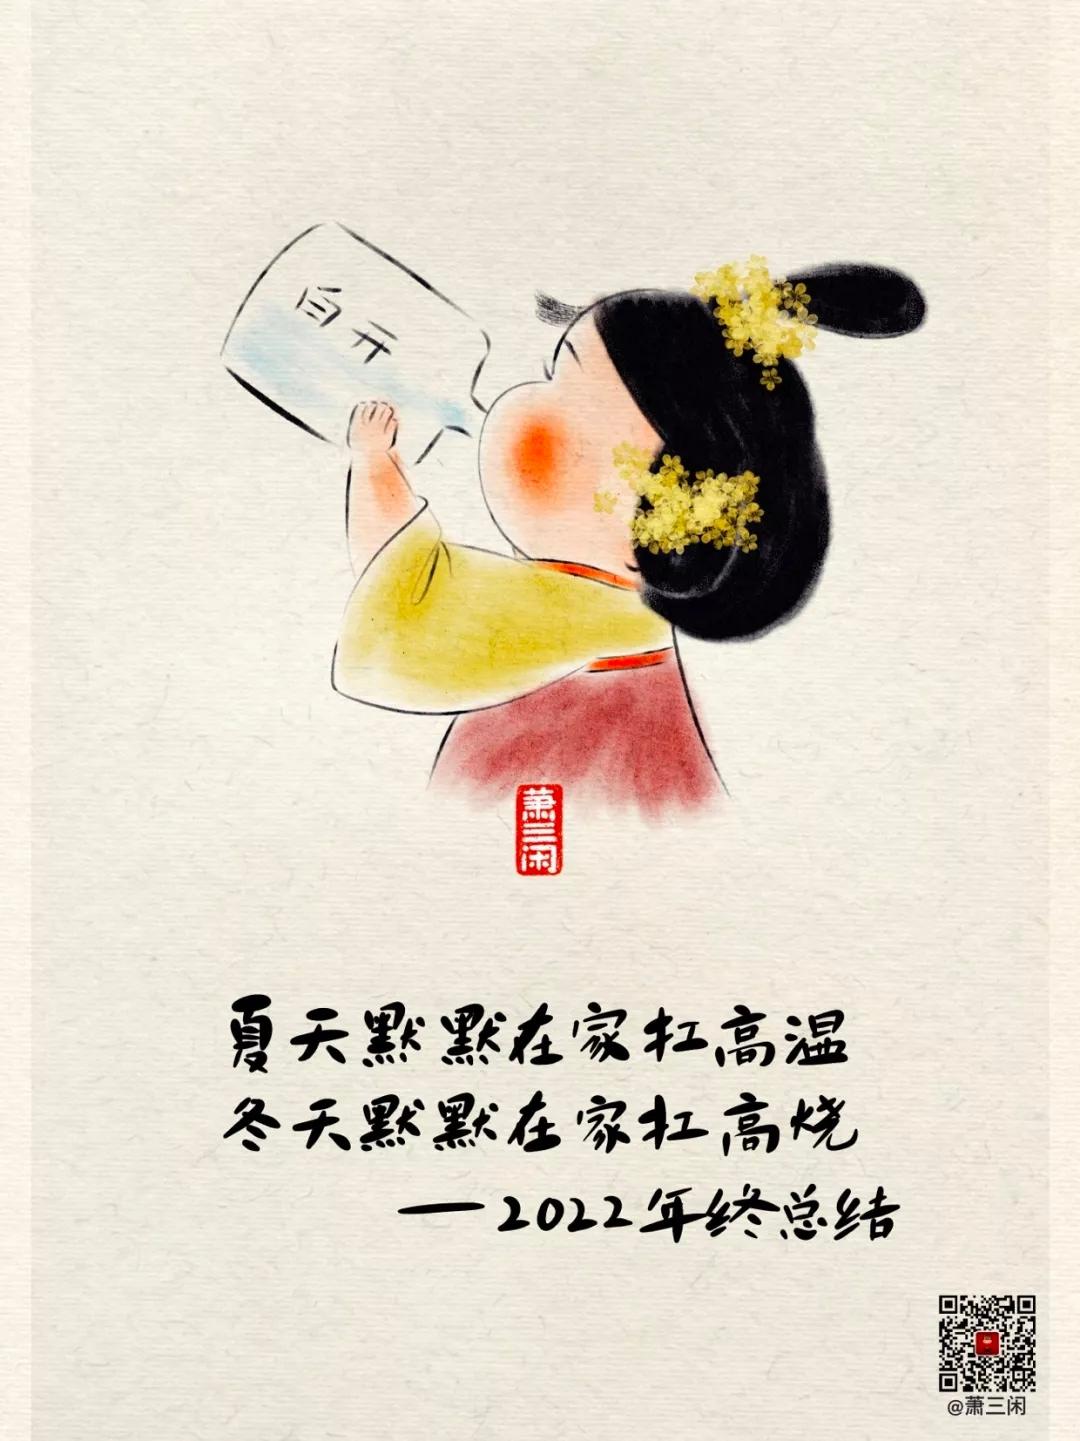 白开
萧三闲
夏天默默在家扛高温
冬天默默在家扛高烧
—2022年终总结
@萧三闲